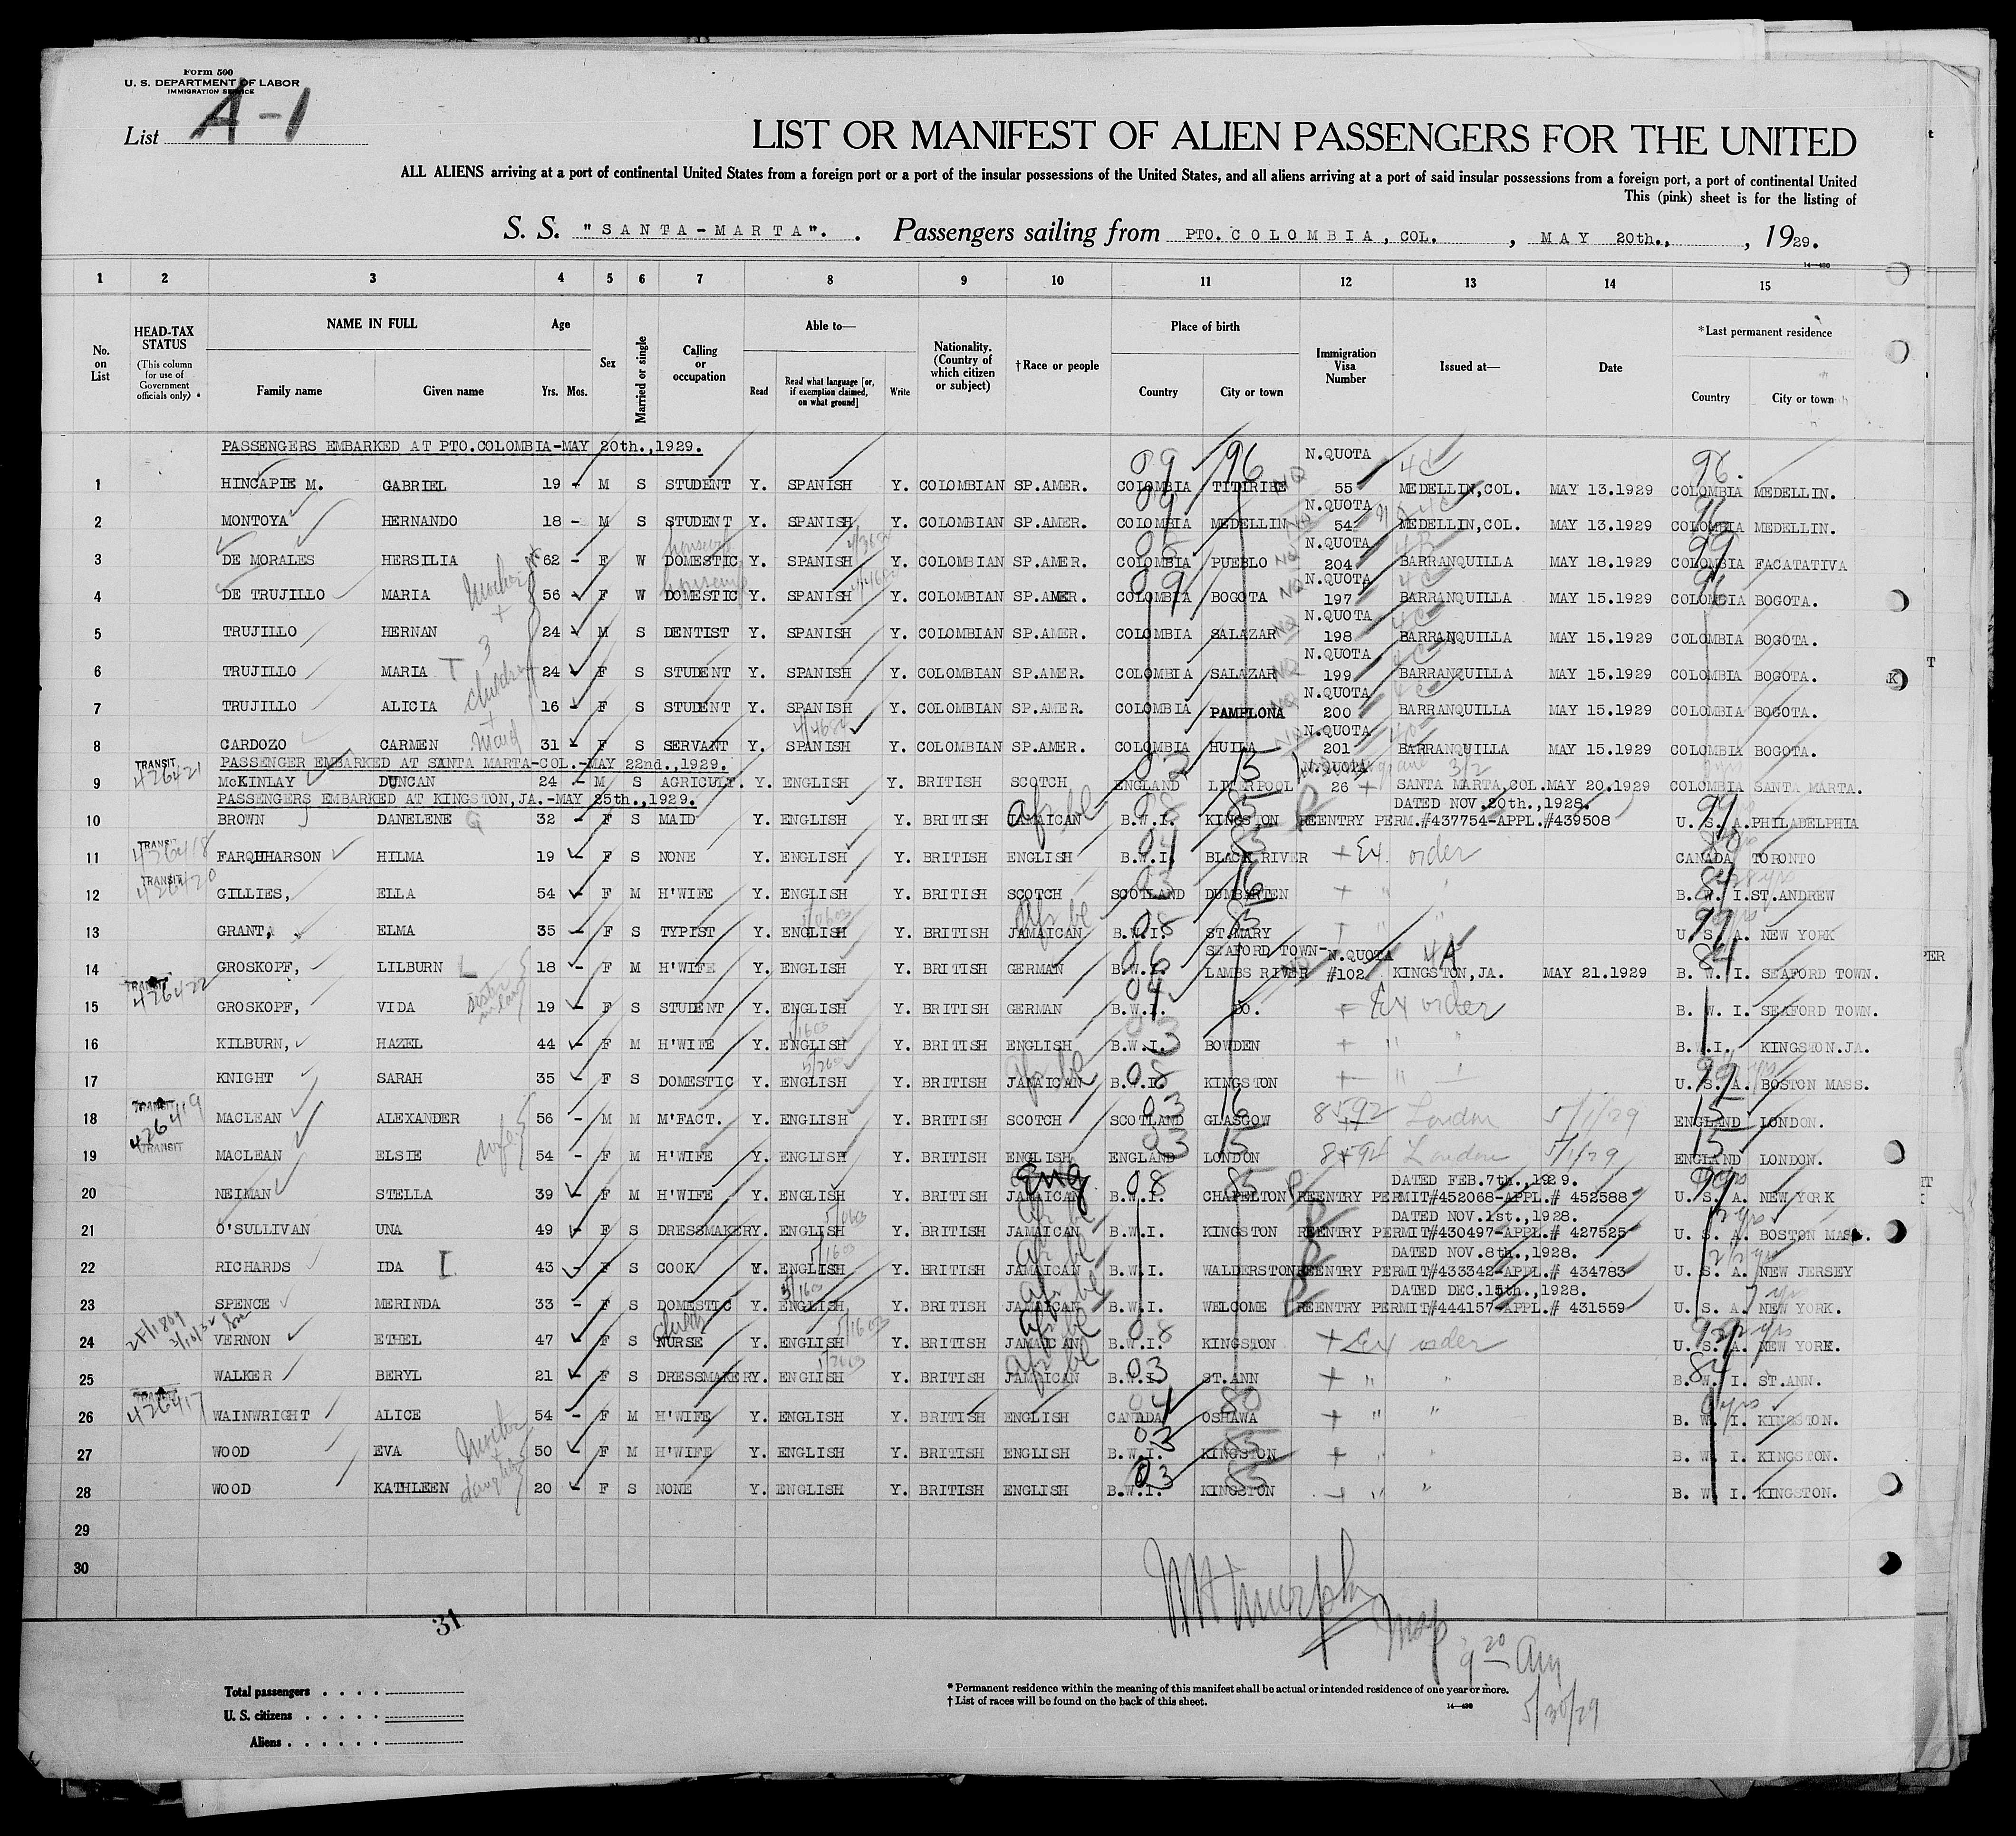 Form 500
U. S. DEPARTMENT OF LABOR
IMMIGRATION SERVICE
List A-1
LIST OR MANIFEST OF ALIEN PASSENGERS FOR THE UNITED
ALL ALIENS arriving at a port of continental United States from a foreign port or a port of the insular possessions of the United States, and all aliens arriving at a port of said insular possessions from a foreign port, a port of continental United
This (pink) sheet is for the listing of
S. S. "SANTA-MARTA". Passengers sailing from PTO.COLOMBIA, COL. , MAY 20th., , 1929.
14—430
1 2 3 4 5 6 7 8 9 10 11 12 13 14 15
No. on List
HEAD-TAX STATUS
(This column for use of Government officials only)
NAME IN FULL
Family name Given name
Age
Yrs. Mos.
Sex
Married or single
Calling or occupation
Able to—
Read
Read what language [or, if exemption claimed, on what ground]
Write
Nationality. (Country of which citizen or subject)
†Race or people
Place of birth
Country City or town
Immigration Visa Number
Issued at—
Date
*Last permanent residence
Country City or town
PASSENGERS EMBARKED AT PTO.COLOMBIA-MAY 20th.,1929.
1 HINCAPIE M. GABRIEL 19 - M S STUDENT Y. SPANISH Y. COLOMBIAN SP.AMER. COLOMBIA TITIRIBE N.QUOTA 55 MEDELLIN,COL. MAY 13.1929 COLOMBIA MEDELLIN.
2 MONTOYA HERNANDO 18 - M S STUDENT Y. SPANISH Y. COLOMBIAN SP.AMER. COLOMBIA MEDELLIN N.QUOTA 54 MEDELLIN,COL. MAY 13.1929 COLOMBIA MEDELLIN.
3 DE MORALES HERSILIA 62 - F W DOMESTIC Y. SPANISH Y. COLOMBIAN SP.AMER. COLOMBIA PUEBLO N.QUOTA 204 BARRANQUILLA MAY 18.1929 COLOMBIA FACATATIVA
4 DE TRUJILLO MARIA 56 - F W DOMESTIC Y. SPANISH Y. COLOMBIAN SP.AMER. COLOMBIA BOGOTA N.QUOTA 197 BARRANQUILLA MAY 15.1929 COLOMBIA BOGOTA.
5 TRUJILLO HERNAN 24 - M S DENTIST Y. SPANISH Y. COLOMBIAN SP.AMER. COLOMBIA SALAZAR N.QUOTA 198 BARRANQUILLA MAY 15.1929 COLOMBIA BOGOTA.
6 TRUJILLO MARIA T 24 - F S STUDENT Y. SPANISH Y. COLOMBIAN SP.AMER. COLOMBIA SALAZAR N.QUOTA 199 BARRANQUILLA MAY 15.1929 COLOMBIA BOGOTA.
7 TRUJILLO ALICIA 16 - F S STUDENT Y. SPANISH Y. COLOMBIAN SP.AMER. COLOMBIA PAMPLONA N.QUOTA 200 BARRANQUILLA MAY 15.1929 COLOMBIA BOGOTA.
Mother + 3 children + maid
8 CARDOZO CARMEN 31 - F S SERVANT Y. SPANISH Y. COLOMBIAN SP.AMER. COLOMBIA HUILA N.QUOTA 201 BARRANQUILLA MAY 15.1929 COLOMBIA BOGOTA.
PASSENGER EMBARKED AT SANTA MARTA-COL.-MAY 22nd.,1929.
9 TRANSIT 426421 McKINLAY DUNCAN 24 - M S AGRICULT. Y. ENGLISH Y. BRITISH SCOTCH ENGLAND LIVERPOOL N.QUOTA 26 SANTA MARTA,COL. MAY 20.1929 COLOMBIA SANTA MARTA.
PASSENGERS EMBARKED AT KINGSTON,JA.-MAY 25th.,1929.
DATED NOV.20th.,1928.
10 BROWN DANELENE G 32 - F S MAID Y. ENGLISH Y. BRITISH JAMAICAN B.W.I. KINGSTON REENTRY PERM.#437754-APPL.#439508 U. S. A. PHILADELPHIA
11 TRANSIT 426418 FARQUHARSON HILMA 19 - F S NONE Y. ENGLISH Y. BRITISH ENGLISH B.W.I. BLACK RIVER + Ex. order CANADA TORONTO
12 TRANSIT 426420 GILLIES, ELLA 54 - F M H'WIFE Y. ENGLISH Y. BRITISH SCOTCH SCOTLAND DUMBARTEN + " " B. W. I. ST.ANDREW
13 GRANT, ELMA 35 - F S TYPIST Y. ENGLISH Y. BRITISH JAMAICAN B.W.I. ST.MARY " " U. S. A. NEW YORK
14 GROSKOPF, LILBURN L 18 - F M H'WIFE Y. ENGLISH Y. BRITISH GERMAN B.W.I. SEAFORD TOWN- LAMBS RIVER N.QUOTA #102 4A KINGSTON,JA. MAY 21.1929 B. W. I. SEAFORD TOWN.
15 TRANSIT 426422 GROSKOPF, VIDA sister in law 19 - F S STUDENT Y. ENGLISH Y. BRITISH GERMAN B.W.I. DO. Ex order B. W. I. SEAFORD TOWN.
16 KILBURN, HAZEL 44 - F M H'WIFE Y. ENGLISH Y. BRITISH ENGLISH B.W.I. BOWDEN + " " B.W.I. KINGSTON.JA.
17 KNIGHT SARAH 35 - F S DOMESTIC Y. ENGLISH Y. BRITISH JAMAICAN B.W.I. KINGSTON " U. S. A. BOSTON MASS.
18 TRANSIT 426419 MACLEAN ALEXANDER 56 - M M M'FACT. Y. ENGLISH Y. BRITISH SCOTCH SCOTLAND GLASGOW 8592 London 5/1/29 ENGLAND LONDON.
19 TRANSIT MACLEAN ELSIE wife 54 - F M H'WIFE Y. ENGLISH Y. BRITISH ENGLISH ENGLAND LONDON 8594 London 5/1/29 ENGLAND LONDON.
DATED FEB.7th.,1929.
20 NEIMAN STELLA 39 - F M H'WIFE Y. ENGLISH Y. BRITISH JAMAICAN Eng B.W.I. CHAPELTON REENTRY PERMIT#452068-APPL.# 452588 U. S. A. NEW YORK
DATED NOV.1st.,1928.
21 O'SULLIVAN UNA 49 - F S DRESSMAKER Y. ENGLISH Y. BRITISH JAMAICAN B.W.I. KINGSTON REENTRY PERMIT#430497-APPL.# 427525 U. S. A. BOSTON MASS.
DATED NOV.8th.,1928.
22 RICHARDS IDA I 43 - F S COOK Y. ENGLISH Y. BRITISH JAMAICAN B.W.I. WALDERSTON REENTRY PERMIT#433342-APPL.# 434783 U. S. A. NEW JERSEY
DATED DEC.15th.,1928.
23 SPENCE MERINDA 33 - F S DOMESTIC Y. ENGLISH Y. BRITISH JAMAICAN B.W.I. WELCOME REENTRY PERMIT#444157-APPL.# 431559 U. S. A. NEW YORK.
24 VERNON ETHEL 47 - F S NURSE Y. ENGLISH Y. BRITISH JAMAICAN B.W.I. KINGSTON + Ex order U. S. A. NEW YORK.
25 WALKER BERYL 21 - F S DRESSMAKER Y. ENGLISH Y. BRITISH JAMAICAN B.W.I. ST.ANN + " " B. W. I. ST.ANN.
26 TRANSIT 426417 WAINWRIGHT ALICE 54 - F M H'WIFE Y. ENGLISH Y. BRITISH ENGLISH CANADA OSHAWA + " " B. W. I. KINGSTON.
27 WOOD EVA 50 - F M H'WIFE Y. ENGLISH Y. BRITISH ENGLISH B.W.I. KINGSTON + " " B. W. I. KINGSTON.
Mother + daughter
28 WOOD KATHLEEN 20 - F S NONE Y. ENGLISH Y. BRITISH ENGLISH B.W.I. KINGSTON + " " B. W. I. KINGSTON.
29
30
31
W H Murphy Insp
9 20 Am
5/30/29
Total passengers
U. S. citizens
Aliens
* Permanent residence within the meaning of this manifest shall be actual or intended residence of one year or more.
† List of races will be found on the back of this sheet.
14—430